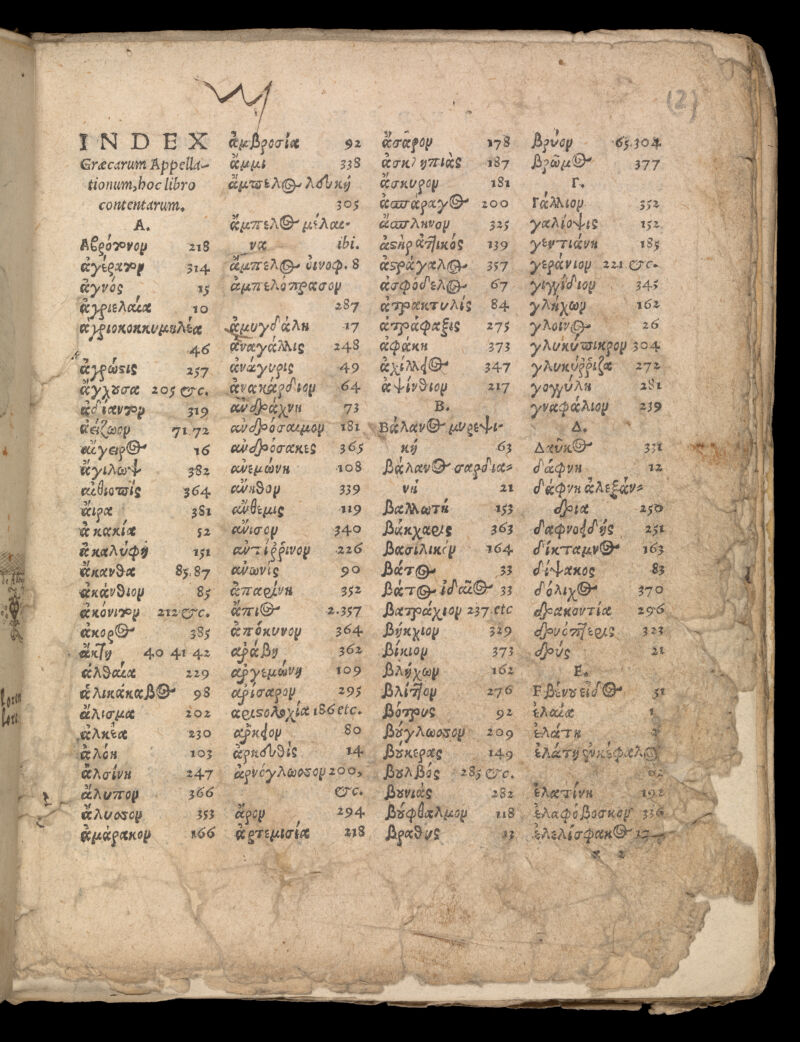 (2)
INDEX
Græcarum Appella-
tionum, hoc libro
contentarum.
A.
Ἀβρότονον 218
ἀγέρατον 314
ἄγνός 15
ἀγριελαία 10
ἀγριοκοκκυμαλέα
46
ἄγρωστις 257
ἄγχουσα 205 &c.
ἀδίαντον 319
ἀείζωον 71 72
αἴγειρος 16
αἰγίλωψ 382
αἰθιοπίς 364
αἴρα 381
ἀκακία 52
ἀκαλύφη 151
ἄκανθα 85.87
ἀκάνθιον 85
ἀκόνιτον 212 &c.
ἄκορος 385
ἀκτῆ 40 41 42
ἀλθαία 229
ἁλικάκαβος 98
ἄλισμα 202
ἀλκέα 230
ἀλόη 103
ἀλσίνη 247
ἄλυπον 366
ἄλυσσον 353
ἀμάρακον 166
ἀμβροσία 92
ἄμμι 338
ἄμπελος λευκή
305
ἄμπελος μέλαι-
να ibi.
ἄμπελος οἰνοφ. 8
ἀμπελόπρασον
287
ἀμυγδάλη 17
ἀναγάλλις 248
ἀνάγυρις 49
ἀνακάρδιον 64
ἀνδράχνη 73
ἀνδρόσαιμον 181
ἀνδρόσακες 365
ἀνεμώνη 108
ἄνηθον 339
ἄνθεμις 119
ἄνισον 340
ἀντίρρινον 226
ἀνωνίς 90
ἀπαρίνη 352
ἄπιος 2.357
ἀπόκυνον 364
ἀράβη 362
ἀργεμώνη 109
ἀρίσαρον 295
αριστολοχία 186 etc.
ἄρκιον 80
ἀρκευθίς 14
ἀρνόγλωσσον 200,
&c.
ἄρον 294
ἀρτεμισία 218
ἄσαρον 178
ἀσκληπιὰς 187
ἄσκυρον 181
ἀσπάραγος 200
ἄσπληνον 325
ἀστὴρ ἀττικός 139
ἀστράγαλος 357
ἀσφόδελος 67
ἀτρακτυλίς 84
ἀτράφαξις 275
ἀφάκη 373
ἀχίλλειος 347
ἀψίνθιον 217
B.
Βάλανος μυρεψι-
κή 63
βάλανος σαρδια-
νή 21
βαλλωτή 153
βάκχαρις 363
βασιλικόν 164
βάτος 33
βάτος ἰδαῖος 33
βατράχιον 237 etc
βήκχιον 329
βίκιον 373
βλήχων 162
βλίττον 276
βότρυς 92
βούγλωσσον 209
βούκερας 149
βολβός 285 &c.
βουνιάς 282
βούφθαλμον 118
βραθυς 13
βρύον 65.304
βρῶμος 377
Γ.
Γάλλιον 352
γαλίοψις 152
γεντιάνη 185
γεράνιον 221 &c.
γιγγίδιον 345
γλήχων 162
γλοῖνος 26
γλυκύπικρον 304
γλυκύρριζα 272
γογγύλη 281
γναφάλιον 239
Δ.
Δαῦκος 331
δάφνη 12
δάφνη ἀλεξάν-
δρια 250
δαφνοειδής 251
δίκταμνος 163
δίψακος 83
δόλιχος 370
δρακοντία 296
δρυόπτερις 323
δρῦς 21
E.
Εβένου εἶδος 51
ἐλαία
ἐλάτη
ἐλατίνη 192
ἐλαφόβοσκον 336
ἐλελίσφακος